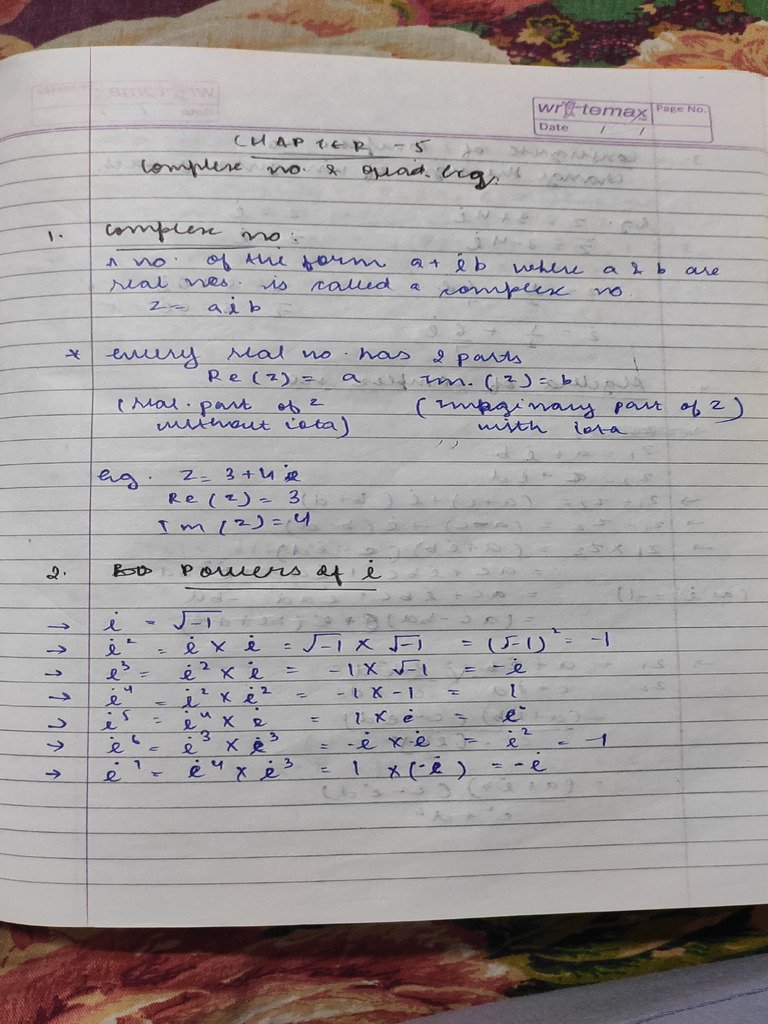 wrytemax
Page No.
Date / /
CHAPTER - 5
Complex no. & quad. eq.
1. Complex no:
A no. of the form a + ib where a & b are
real nos. is called a complex no.
z = aib
* every real no. has 2 parts
Re(z) = a Im.(z) = b
(real part of z (imaginary part of z)
without iota) with iota
eg. z = 3 + 4i
Re(z) = 3
Im(z) = 4
2. Powers of i
→ i = √-1
→ i² = i × i = √-1 × √-1 = (√-1)² = -1
→ i³ = i² × i = -1 × √-1 = -i
→ i⁴ = i² × i² = -1 × -1 = 1
→ i⁵ = i⁴ × i = 1 × i = i
→ i⁶ = i³ × i³ = -i × -i = i² = -1
→ i⁷ = i⁴ × i³ = 1 × (-i) = -i